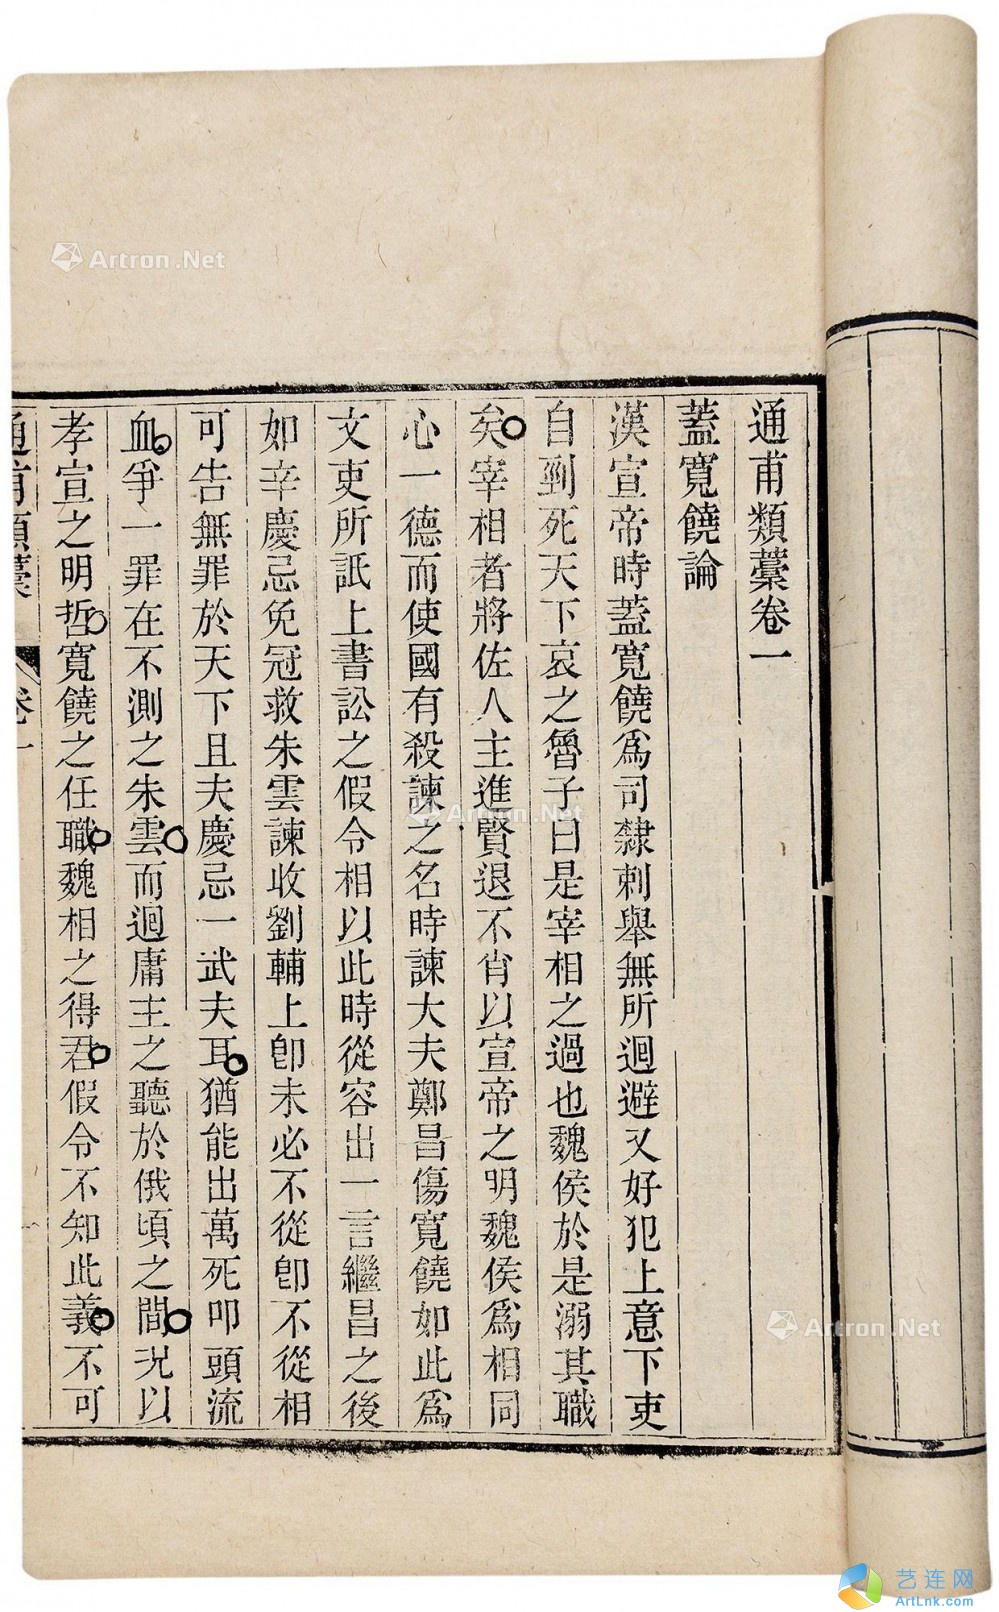 通甫類藁卷一
蓋寬饒論
漢宣帝時蓋寬饒爲司隸刺舉無所迴避又好犯上意下吏
自剄死天下哀之魯子曰是宰相之過也魏侯於是溺其職
矣宰相者將佐人主進賢退不肖以宣帝之明魏侯爲相同
心一德而使國有殺諫之名時諫大夫鄭昌傷寬饒如此爲
文吏所詆上書訟之假令相以此時從容出一言繼昌之後
如辛慶忌免冠救朱雲諫收劉輔上卽未必不從卽不從相
可告無罪於天下且夫慶忌一武夫耳猶能出萬死叩頭流
血爭一罪在不測之朱雲而迴庸主之聽於俄頃之間況以
孝宣之明哲寬饒之任職魏相之得君假令不知此義不可
通甫類藁 卷一
Artron.Net
Artron.Net
Artron.Net
艺连网
ArtLnk.com